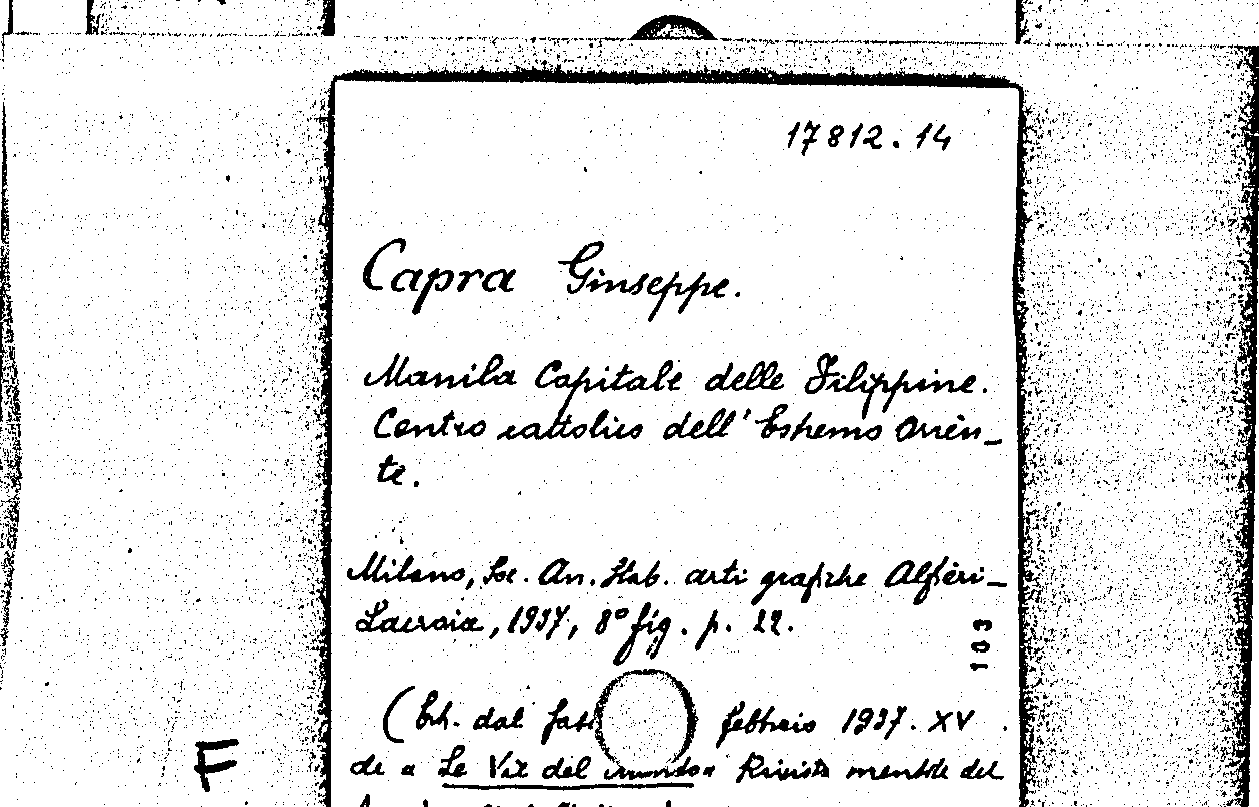 17812.14
Capra Giuseppe.
Manila Capitale delle Filippine.
Centro cattolico dell'Estremo Orien_
te.
Milano, Soc. An. Stab. arti grafiche Alfieri_
Lacroix, 1937, 8° fig. p. 22.
103
(Estr. dal fasc febbraio 1937. XV
de « Le Vie del mondo» Rivista mensile del
F